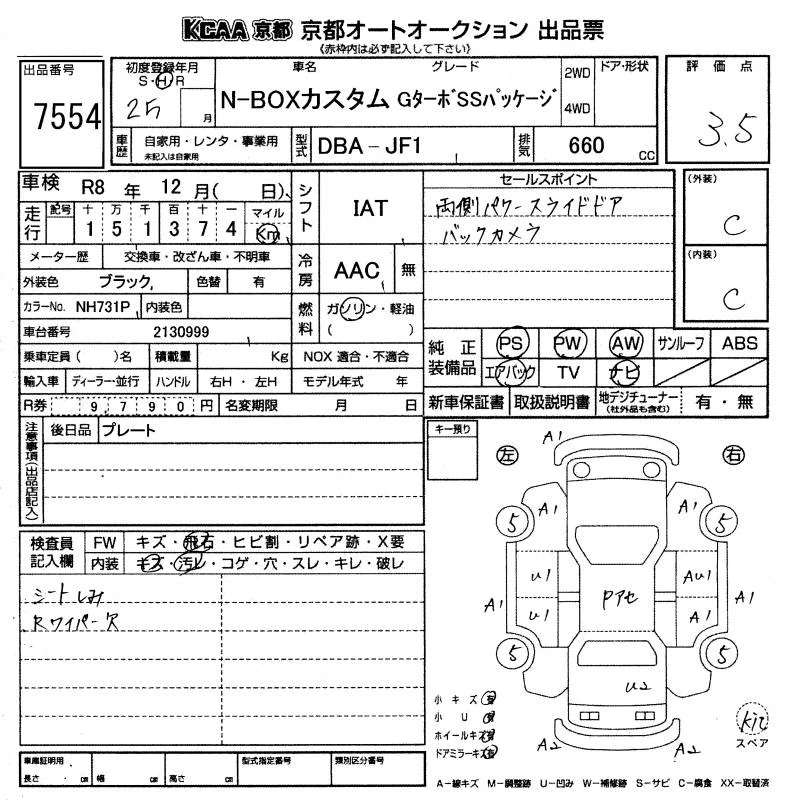 KCAA 京都 京都オートオークション 出品票
《赤枠内は必ず記入して下さい》
出品番号
7554
初度登録年月
S・H・R
25
月
車名
グレード
N-BOXカスタム GターボSSパッケージ
2WD
4WD
ドア・形状
評価点
3.5
車歴
自家用・レンタ・事業用
未記入は自家用
型式
DBA-JF1
排気
660
CC
車検
R8 年 12 月( 日)
走行
記号
十 万 千 百 十 一
1 5 1 3 7 4
マイル
Km
シフト
IAT
セールスポイント
両側パワースライドドア
バックカメラ
(外装)
C
(内装)
C
メーター歴
交換車・改ざん車・不明車
外装色
ブラック
色替
有
冷房
AAC
無
カラーNo.
NH731P
内装色
燃料
ガソリン・軽油
( )
車台番号
2130999
乗車定員( )名
積載量
Kg
NOX 適合・不適合
純正装備品
PS
PW
AW
サンルーフ
ABS
エアバック
TV
ナビ
輸入車
ディーラー・並行
ハンドル
右H・左H
モデル年式
年
R券
9,790円
名変期限
月
日
新車保証書
取扱説明書
地デジチューナー
(社外品も含む)
有・無
注意事項(出品店記入)
後日品
プレート
キー預り
左
右
A1
A1
A1
5
5
検査員記入欄
FW
キズ・飛石・ヒビ割・リペア跡・X要
内装
キズ・汚レ・コゲ・穴・スレ・キレ・破レ
シートしみ
Rワイパー欠
U1
AU1
Pアセ
A1
U1
A
A1
5
5
U2
小キズ 有
小U
ホイールキズ
ドアミラーキズ
A2
A2
kit
スペア
車庫証明用
長さ cm
幅 cm
高さ cm
型式指定番号
類別区分番号
A-線キズ M-調整跡 U-凹み W-補修跡 S-サビ C-腐食 XX-取替済